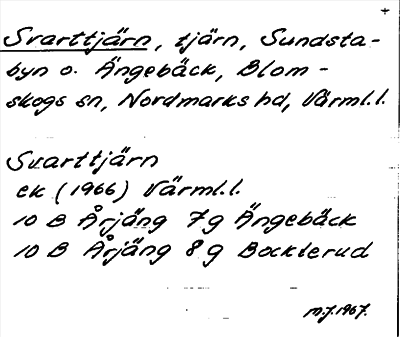 Svarttjärn, tjärn, Sundsta-
byn o. Ängebäck, Blom-
skogs sn, Nordmarks hd, Värml.l.
Svarttjärn
ek (1966) Värml.l.
10 B Årjäng 7g Ängebäck
10 B Årjäng 8g Bockterud
M.J. 1967.